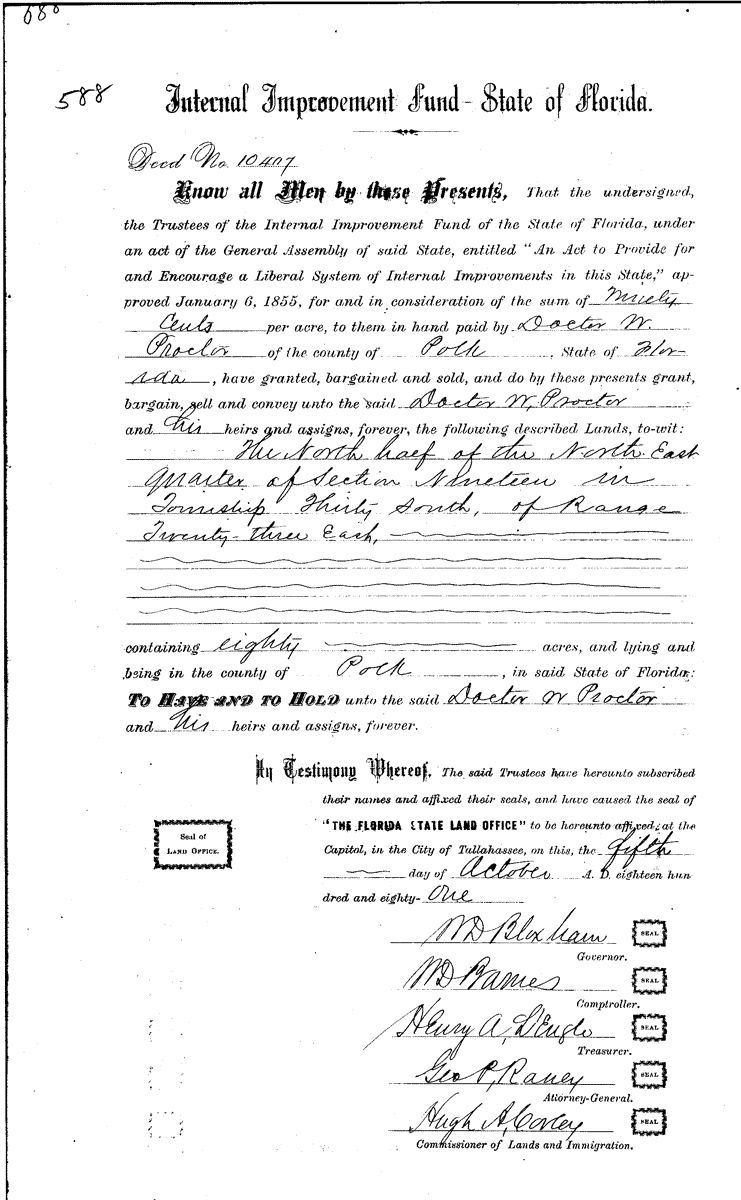 588
Internal Improvement Fund - State of Florida.
Deed No. 10407
Know all Men by these Presents, That the undersigned,
the Trustees of the Internal Improvement Fund of the State of Florida, under
an act of the General Assembly of said State, entitled "An Act to Provide for
and Encourage a Liberal System of Internal Improvements in this State," ap-
proved January 6, 1855, for and in consideration of the sum of Ninety
Cents per acre, to them in hand paid by Doctor W.
Proctor of the county of Polk, State of Flor-
ida, have granted, bargained and sold, and do by these presents grant,
bargain, sell and convey unto the said Doctor W, Proctor
and his heirs and assigns, forever, the following described Lands, to-wit:
The North half of the North East
Quarter of Section Nineteen in
Township Thirty South, of Range
Twenty-three East,
containing eighty acres, and lying and
being in the county of Polk, in said State of Florida:
To Have and to Hold unto the said Doctor W Proctor
and his heirs and assigns, forever.
In Testimony Whereof, The said Trustees have hereunto subscribed
their names and affixed their seals, and have caused the seal of
"THE FLORIDA STATE LAND OFFICE" to be hereunto affixed, at the
Capitol, in the City of Tallahassee, on this, the fifth
day of October A. D. eighteen hun
dred and eighty-one
Seal of
LAND OFFICE.
WD Bloxham SEAL
Governor.
WD Barnes SEAL
Comptroller.
Henry A, L'Engle SEAL
Treasurer.
Geo P, Raney SEAL
Attorney-General.
Hugh A, Corley SEAL
Commissioner of Lands and Immigration.